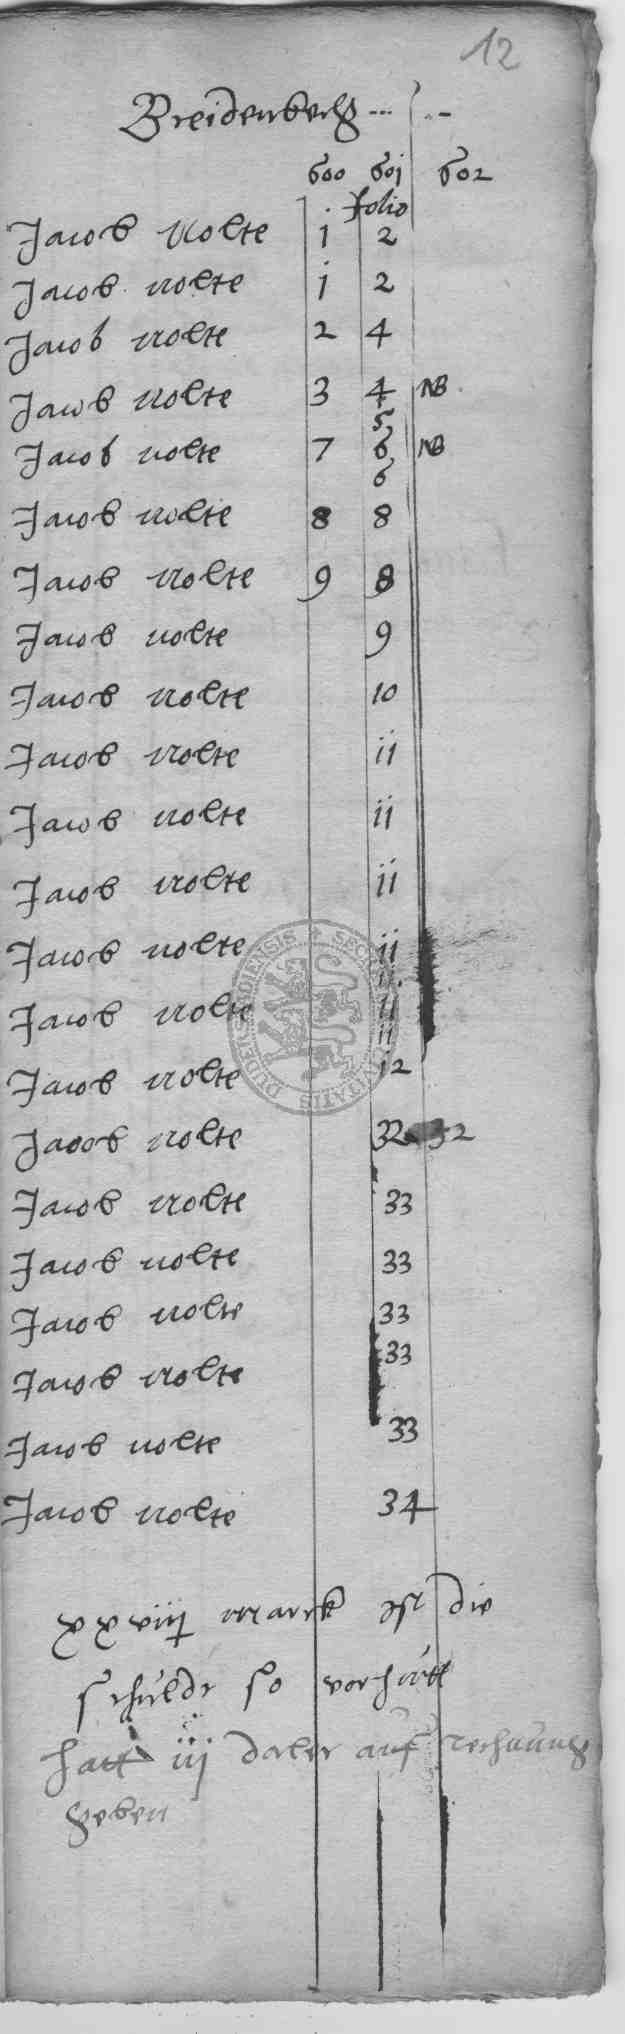 12
Breidenberg
600 601 602
folio
Jacob Nolte 1 2
Jacob nolte 1 2
Jacob nolte 2 4
Jacob nolte 3 4 NB
5
Jacob nolte 7 6 NB
6
Jacob nolte 8 8
Jacob nolte 9 8
Jacob nolte 9
Jacob nolte 10
Jacob nolte ii
Jacob nolte ii
Jacob nolte ii
Jacob nolte ii
ii
Jacob nolte ii
ii
Jacob nolte 12
Jacob nolte 32 32
Jacob nolte 33
Jacob nolte 33
Jacob nolte 33
Jacob nolte 33
Jacob nolte 33
Jacob nolte 34
xxviiij marck ist die
schuldt so
hatt iij daler auf rechnung
geben